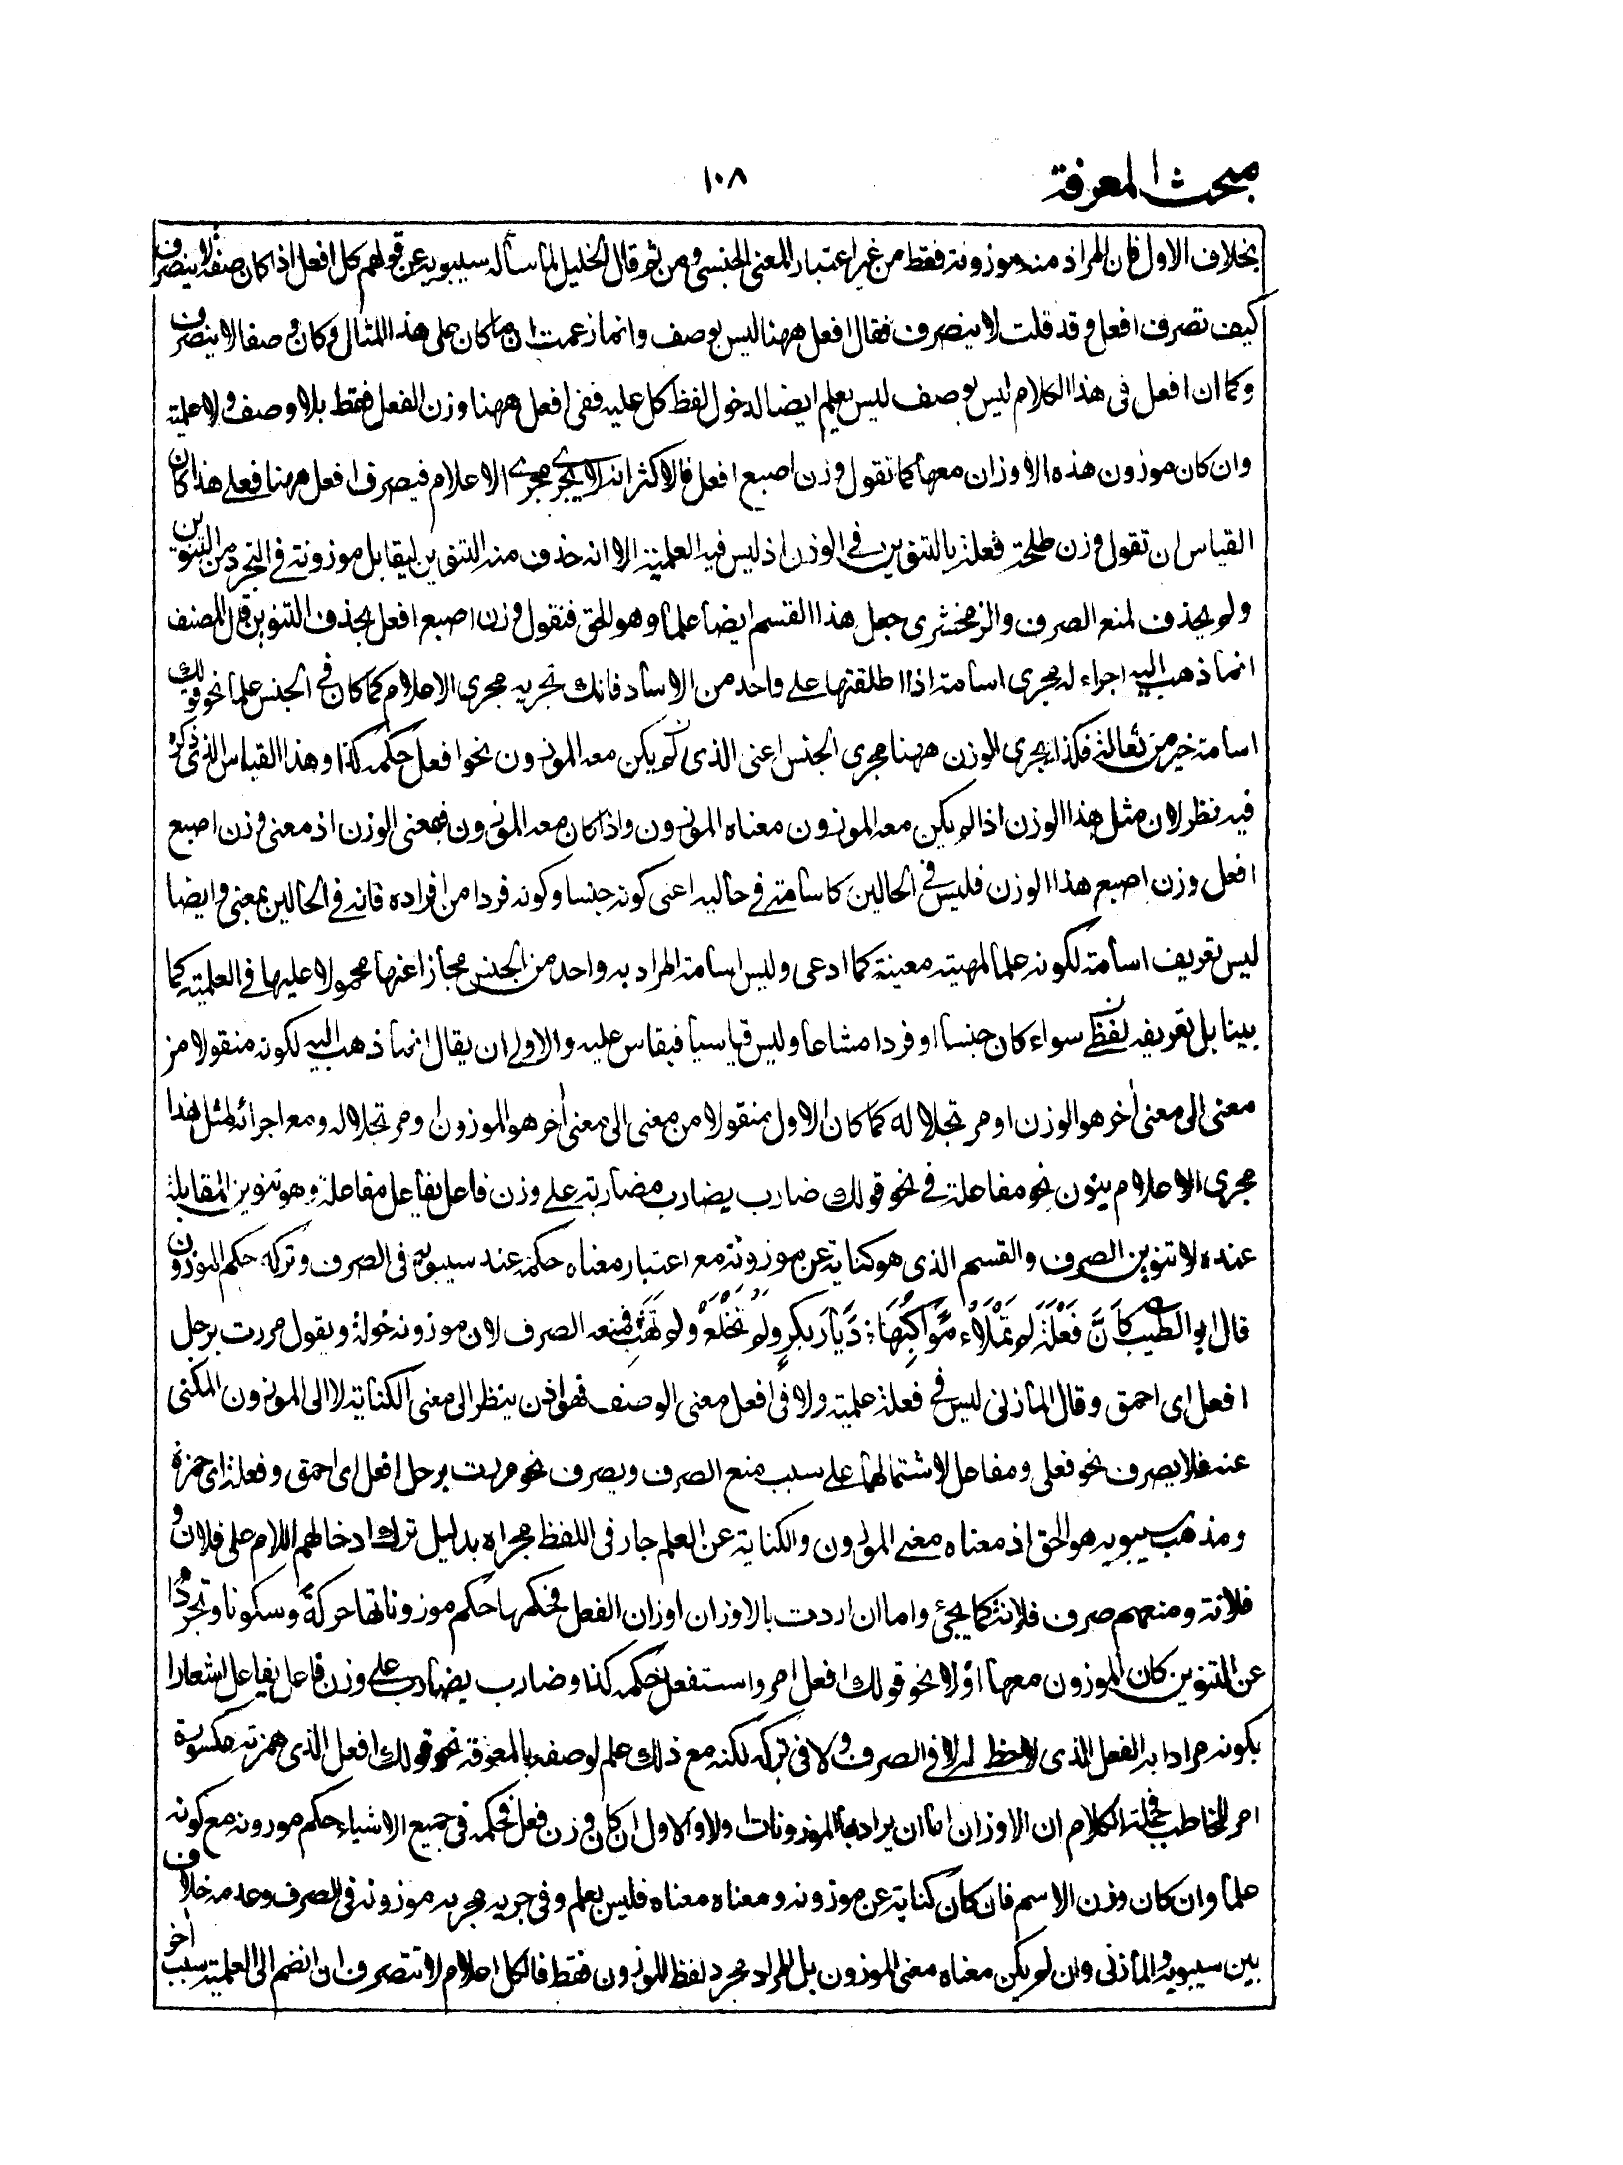 مبحث المعرفة
١٠٨
بخلاف الاول فان المراد منه موزونة فقط من غير اعتبار المعنى الجنسى ومن ثم قال الخليل لما سأله سيبويه عن قولهم كل افعل اذا كان صفة لا ينصرف
كيف تصرف افعل وقد قلت لا ينصرف فقال افعل ههنا ليس بوصف وانما زعمت ان ما كان على هذا المثال وكان وصفا لا ينصرف
وكما ان افعل فى هذا الكلام ليس بوصف ليس بعلم ايضا لدخول لفظ كل عليه ففى افعل ههنا وزن الفعل فقط بلا وصف ولا علمية
وان كان موزون هذه الاوزان معها كما تقول وزن اصبع افعل فالاكثر انه لا يجرى مجرى الاعلام فيصرف افعل ههنا فعلى هذا كان
القياس ان تقول وزن طلحة فعلة بالتنوين فى الوزن اذ ليس فيه العلمية الا انه حذف منه التنوين ليقابل موزونه فى التجرد من التنوين
ولم يحذف لمنع الصرف والزمخشرى جعل هذا القسم ايضا علما وهو الحق فنقول وزن اصبع افعل بحذف التنوين قال المصنف
انما ذهب اليه اجراء له مجرى اسامة اذا اطلقتها على واحد من الاساد فانك تجريه مجرى الاعلام كما كان فى الجنس علما نحو قولك
اسامة خير من ثعالة فكذا يجرى الوزن ههنا مجرى الجنس اعنى الذى لم يكن معه الموزون نحو افعل حكمه كذا وهذا القياس الذى ذكره
فيه نظر لان مثل هذا الوزن اذا لم يكن معه الموزون معناه الموزون واذا كان معه الموزون فمعنى الوزن اذ معنى وزن اصبع
افعل وزن اصبع هذا الوزن فليس فى الحالين كاسامة فى حاليه اعنى كونه جنسا وكونه فردا من افراده فانه فى الحالين بمعنى وايضا
ليس تعريف اسامة لكونه علما لمهية معينة كما ادعى وليس اسامة المراد به واحد من الجنس مجازا عنها محمولا عليها فى العلمية كما
بينا بل تعريفه لفظى سواء كان جنسا او فردا مشاعا وليس قياسيا فيقاس عليه والاولى ان يقال انما ذهب اليه لكونه منقولا من
معنى الى معنى آخر هو الوزن او مرتجلا له كما كان الاول منقولا من معنى الى معنى آخر هو الموزون او مرتجلا له ومع اجرائه لمثل هذا
مجرى الاعلام ينون نحو مفاعلة فى نحو قولك ضارب يضارب مضاربة على وزن فاعل يفاعل مفاعلة وهو تنوين المقابلة
عنده لا تنوين الصرف والقسم الذى هو كناية عن موزونه مع اعتبار معناه حكمه عند سيبويه فى الصرف وتركه حكم الموزون
قال ابو الطيب كَاَنَّ فَعْلَةَ لم تَمْلَاْء مَوَاكِبُهَا ؛ دِيَارَ بَكْرٍ ولَمْ تَخْلَعْ ولم تَهَبِ فمنعه الصرف لان موزونه خولة ويقول مررت برجل
افعل اى احمق وقال المازنى ليس فى فعلة علمية ولا فى افعل معنى الوصف فهو اذن ينظر الى معنى الكناية لا الى الموزون المكنى
عنه فلا يصرف نحو فعلى ومفاعل لاشتمالهما على سبب منع الصرف ويصرف نحو مررت برجل افعل اى احمق وفعلة اى حمزة
ومذهب سيبويه هو الحق اذ معناه معنى الموزون والكناية عن العلم جار فى اللفظ مجراه بدليل ترك ادخالهم اللام على فلان و
فلانة ومنعهم صرف فلانة كما يجئ واما ان اردت بالاوزان اوزان الفعل فحكمها حكم موزوناتها حركة وسكونا وتجردا
عن التنوين كان الموزون معها اولا نحو قولك افعل امر واستفعل حكمه كذا وضارب يضارب على وزن فاعل يفاعل اشعارا
بكونه مرادا به الفعل الذى لا حظ له لا فى الصرف ولا فى تركه لكنه مع ذلك علم لوصفه بالمعرفة نحو قولك افعل الذى همزته مكسورة
امر للمخاطب فجملة الكلام ان الاوزان اما ان يراد بها الموزونات اولا والاول ان كان وزن فعل فحكمه فى جميع الاشياء حكم موزونه مع كونه
علما وان كان وزن الاسم فان كان كناية عن موزونه ومعناه معناه فليس بعلم وفى جريه مجرى موزونه فى الصرف وعدمه خلاف
بين سيبويه والمازنى وان لم يكن معناه معنى الموزون بل المراد مجرد لفظ الموزون فقط فالكل اعلام لا تنصرف ان انضم الى العلمية سبب آخر